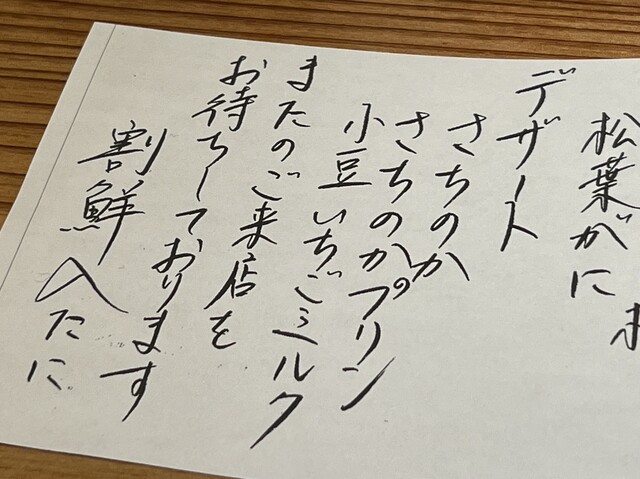 松葉がに
デザート
さちのか
さちのかプリン
小豆いちごミルク
またのご来店を
お待ちしております
割鮮 へたに